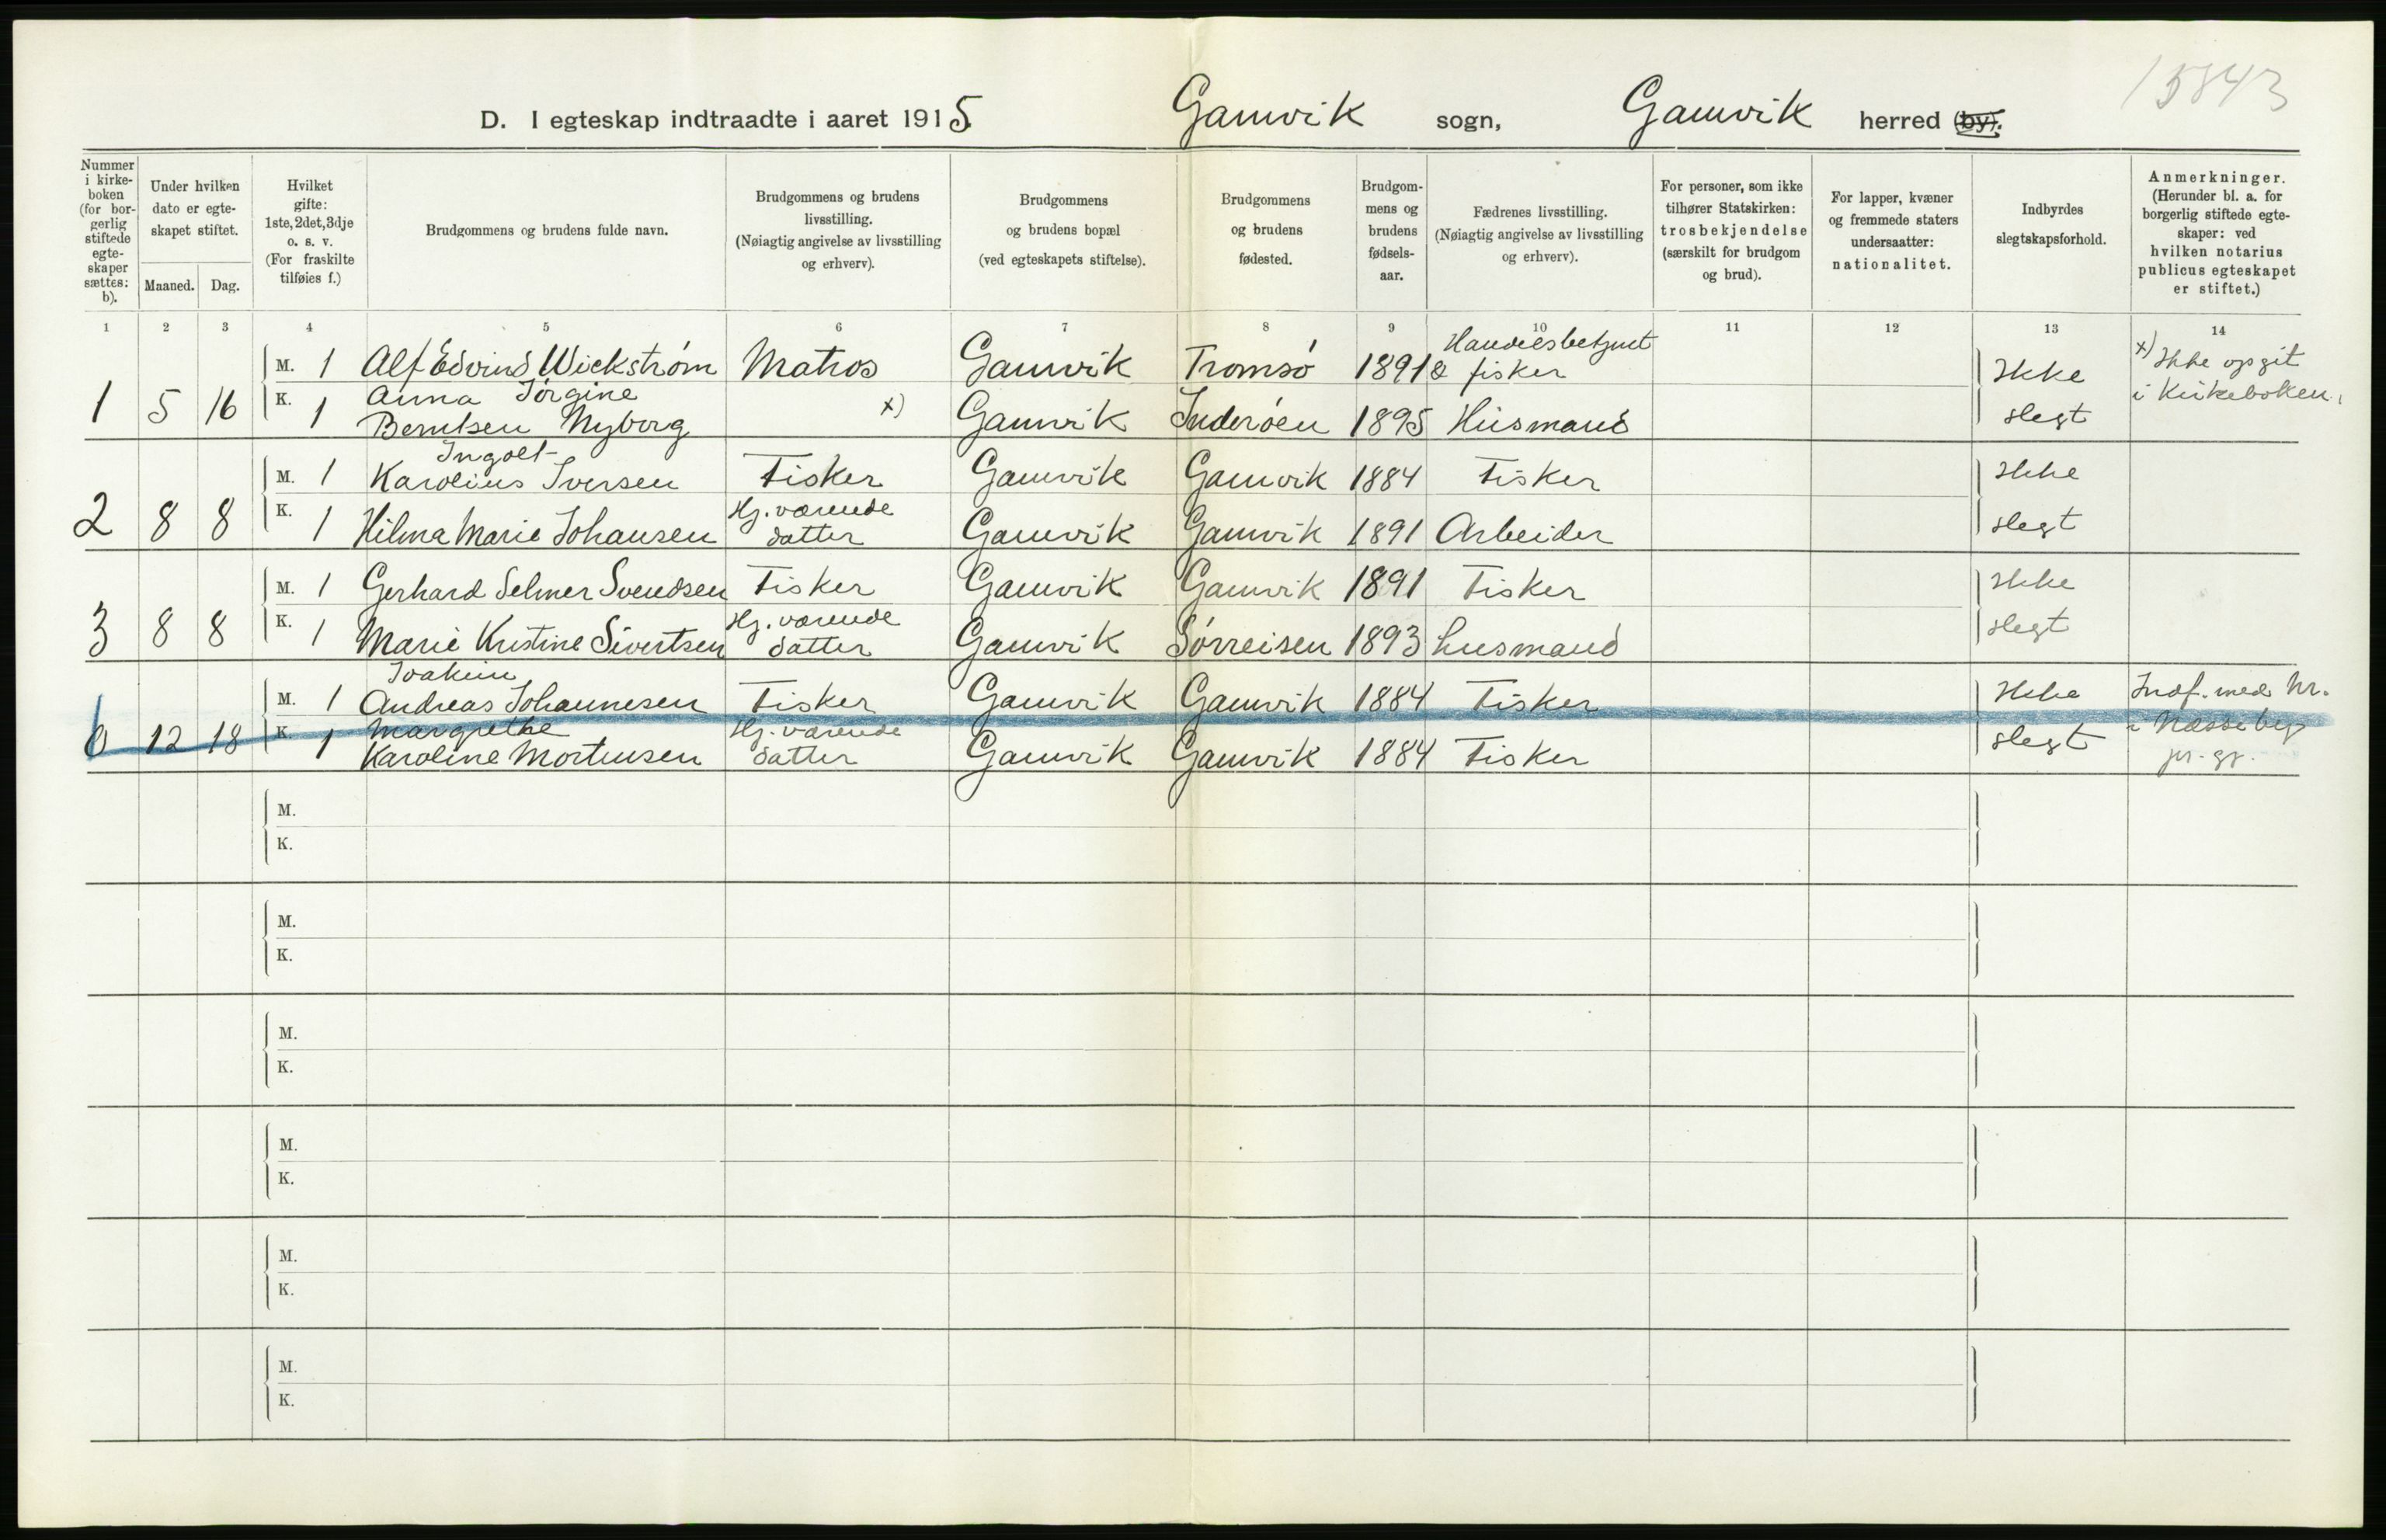 15843
D. I egteskap indtraadte i aaret 1915. Gamvik sogn, Gamvik herred (by).
Nummer i kirkeboken (for borgerlig stiftede egteskaper sættes: b).
Under hvilken dato er egteskapet stiftet.
Maaned. Dag.
Hvilket gifte: 1ste, 2det, 3dje o. s. v. (For fraskilte tilføies f.)
Brudgommens og brudens fulde navn.
Brudgommens og brudens livsstilling. (Nøiagtig angivelse av livsstilling og erhverv).
Brudgommens og brudens bopæl (ved egteskapets stiftelse).
Brudgommens og brudens fødested.
Brudgommens og brudens fødselsaar.
Fædrenes livsstilling. (Nøiagtig angivelse av livsstilling og erhverv).
For personer, som ikke tilhører Statskirken: trosbekjendelse (særskilt for brudgom og brud).
For lapper, kvæner og fremmede staters undersaatter: nationalitet.
Indbyrdes slegtskapsforhold.
Anmerkninger. (Herunder bl. a. for borgerlig stiftede egteskaper: ved hvilken notarius publicus egteskapet er stiftet.)
1 2 3 4 5 6 7 8 9 10 11 12 13 14
1 5 16
M. 1 Alf Edvind Wickstrøm Matros Gamvik Tromsø 1891 Handelsbetjent & fisker Ikke x) Ikke opgit
K. 1 Anna Jørgine Berntsen Nyborg x) Gamvik Inderøen 1895 Husmand slegt i Kirkeboken.
2 8 8
M. 1 Ingolf Karolius Iversen Fisker Gamvik Gamvik 1884 Fisker Ikke
K. 1 Hilma Marie Johansen Hj. værende datter Gamvik Gamvik 1891 Arbeider slegt
3 8 8
M. 1 Gerhard Selmer Svendsen Fisker Gamvik Gamvik 1891 Fisker Ikke
K. 1 Marie Kristine Sivertsen Hj. værende datter Gamvik Sørreisen 1893 husmand slegt
6 12 18
M. 1 Joakim Andreas Johannesen Fisker Gamvik Gamvik 1884 Fisker Ikke Indf. med Nr.
K. 1 Margrethe Karoline Mortensen Hj. værende datter Gamvik Gamvik 1884 Fisker slegt i Næsseby pr.gj.
M.
K.
M.
K.
M.
K.
M.
K.
M.
K.
M.
K.